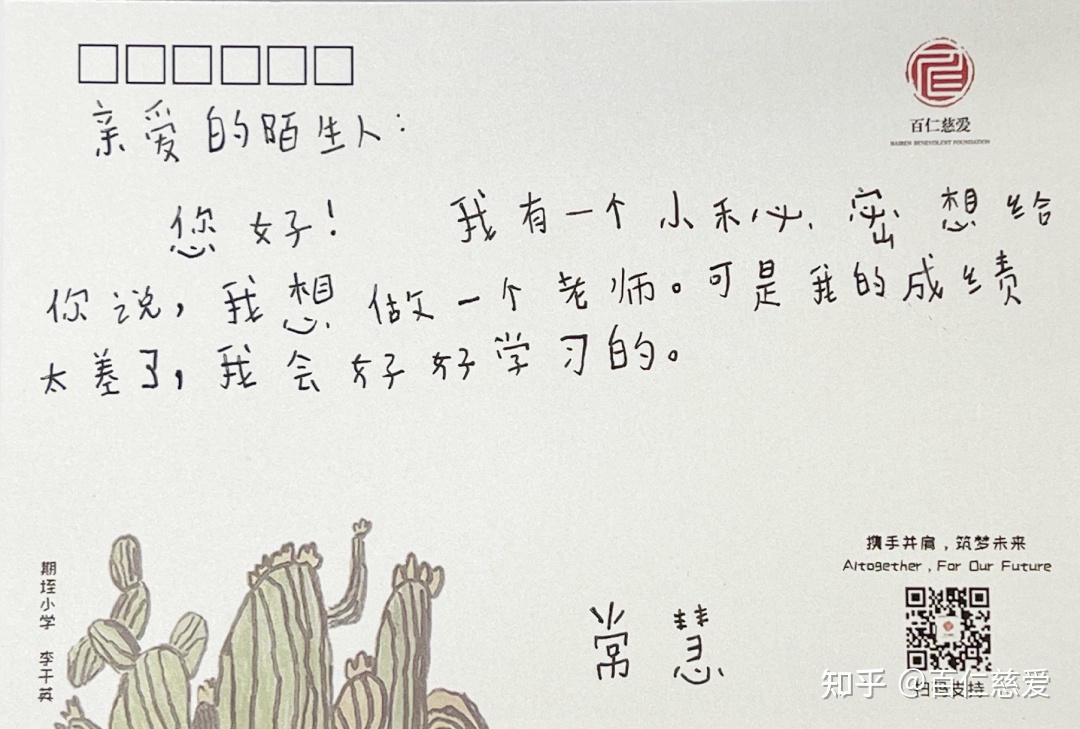 亲爱的陌生人：
百仁慈爱
BAIREN BENEVOLENT FOUNDATION
您好！ 我有一个小秘密想给
你说，我想做一个老师。可是我的成绩
太差了，我会好好学习的。
携手并肩，筑梦未来
Altogether, For Our Future
期垤小学 李干英
常慧
扫码支持
知乎 @百仁慈爱